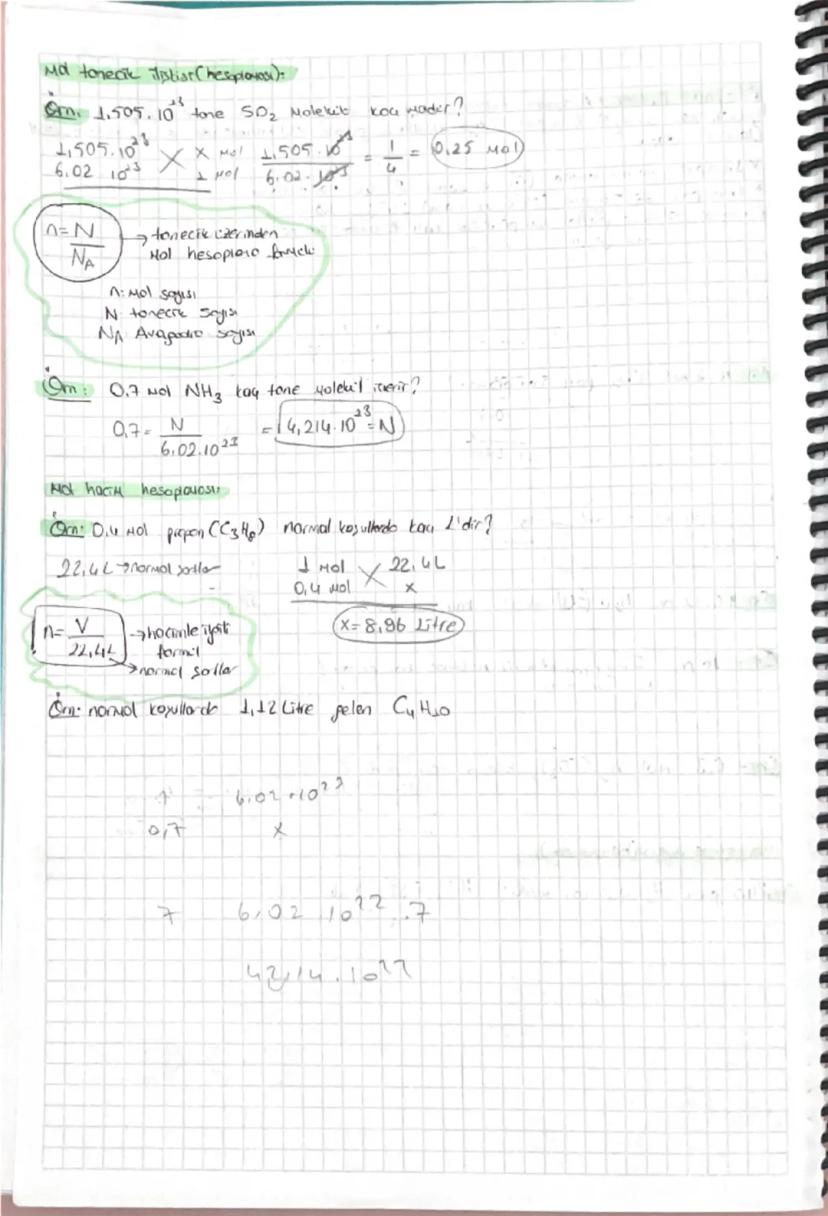 Mol tanecik ilişkisi (hesaplaması):
Örn. 1,505.10^23 tane SO2 molekül kaç moldür?
1,505.10^23 x mol 1,505.10^23 = 1/4 = 0,25 mol
6.02 10^23 1 mol 6.02.10^23
n = N/NA → tanecik üzerinden
mol hesaplama formülü
n: mol sayısı
N tanecik sayısı
NA Avagadro sayısı
Örn: 0.7 mol NH3 kaç tane molekül içerir?
0,7 = N/6.02.10^23 = 4,214.10^23 = N
Mol hacim hesaplaması
Örn: 0,4 mol propan (C3H8) normal koşullarda kaç L'dir?
22,4L → normal şartlar 1 mol 22,4L
0,4 mol x
n = V/22,4L → hacimle ilgili x = 8,96 Litre
formül
→ normal şartlar
Örn: normal koşullarda 1,12 Litre gelen C4H10
1 6.02.10^23
0,7 x
7 6,02 10^22 .7
42,14.10^22